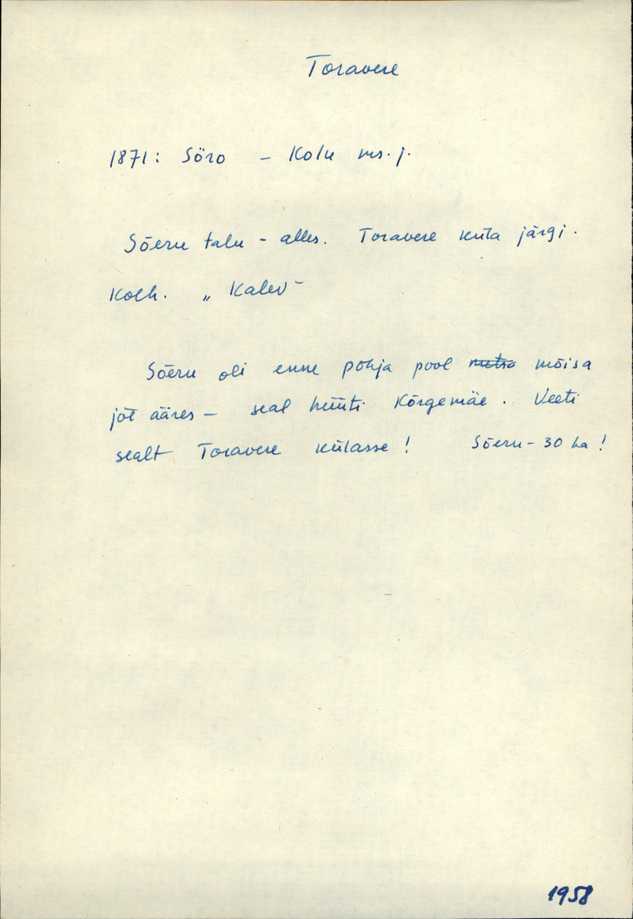 Toravere
1871: Söro – Kolu ms. j.
Sõeru talu – alles. Toravere küla järgi.
Kolh. „Kalev"
Sõeru oli enne põhja pool metsa mõisa
jõe ääres – seal hüüti Kõrgemäe. Veeti
sealt Toravere külasse! Sõeru – 30 ha!
1958